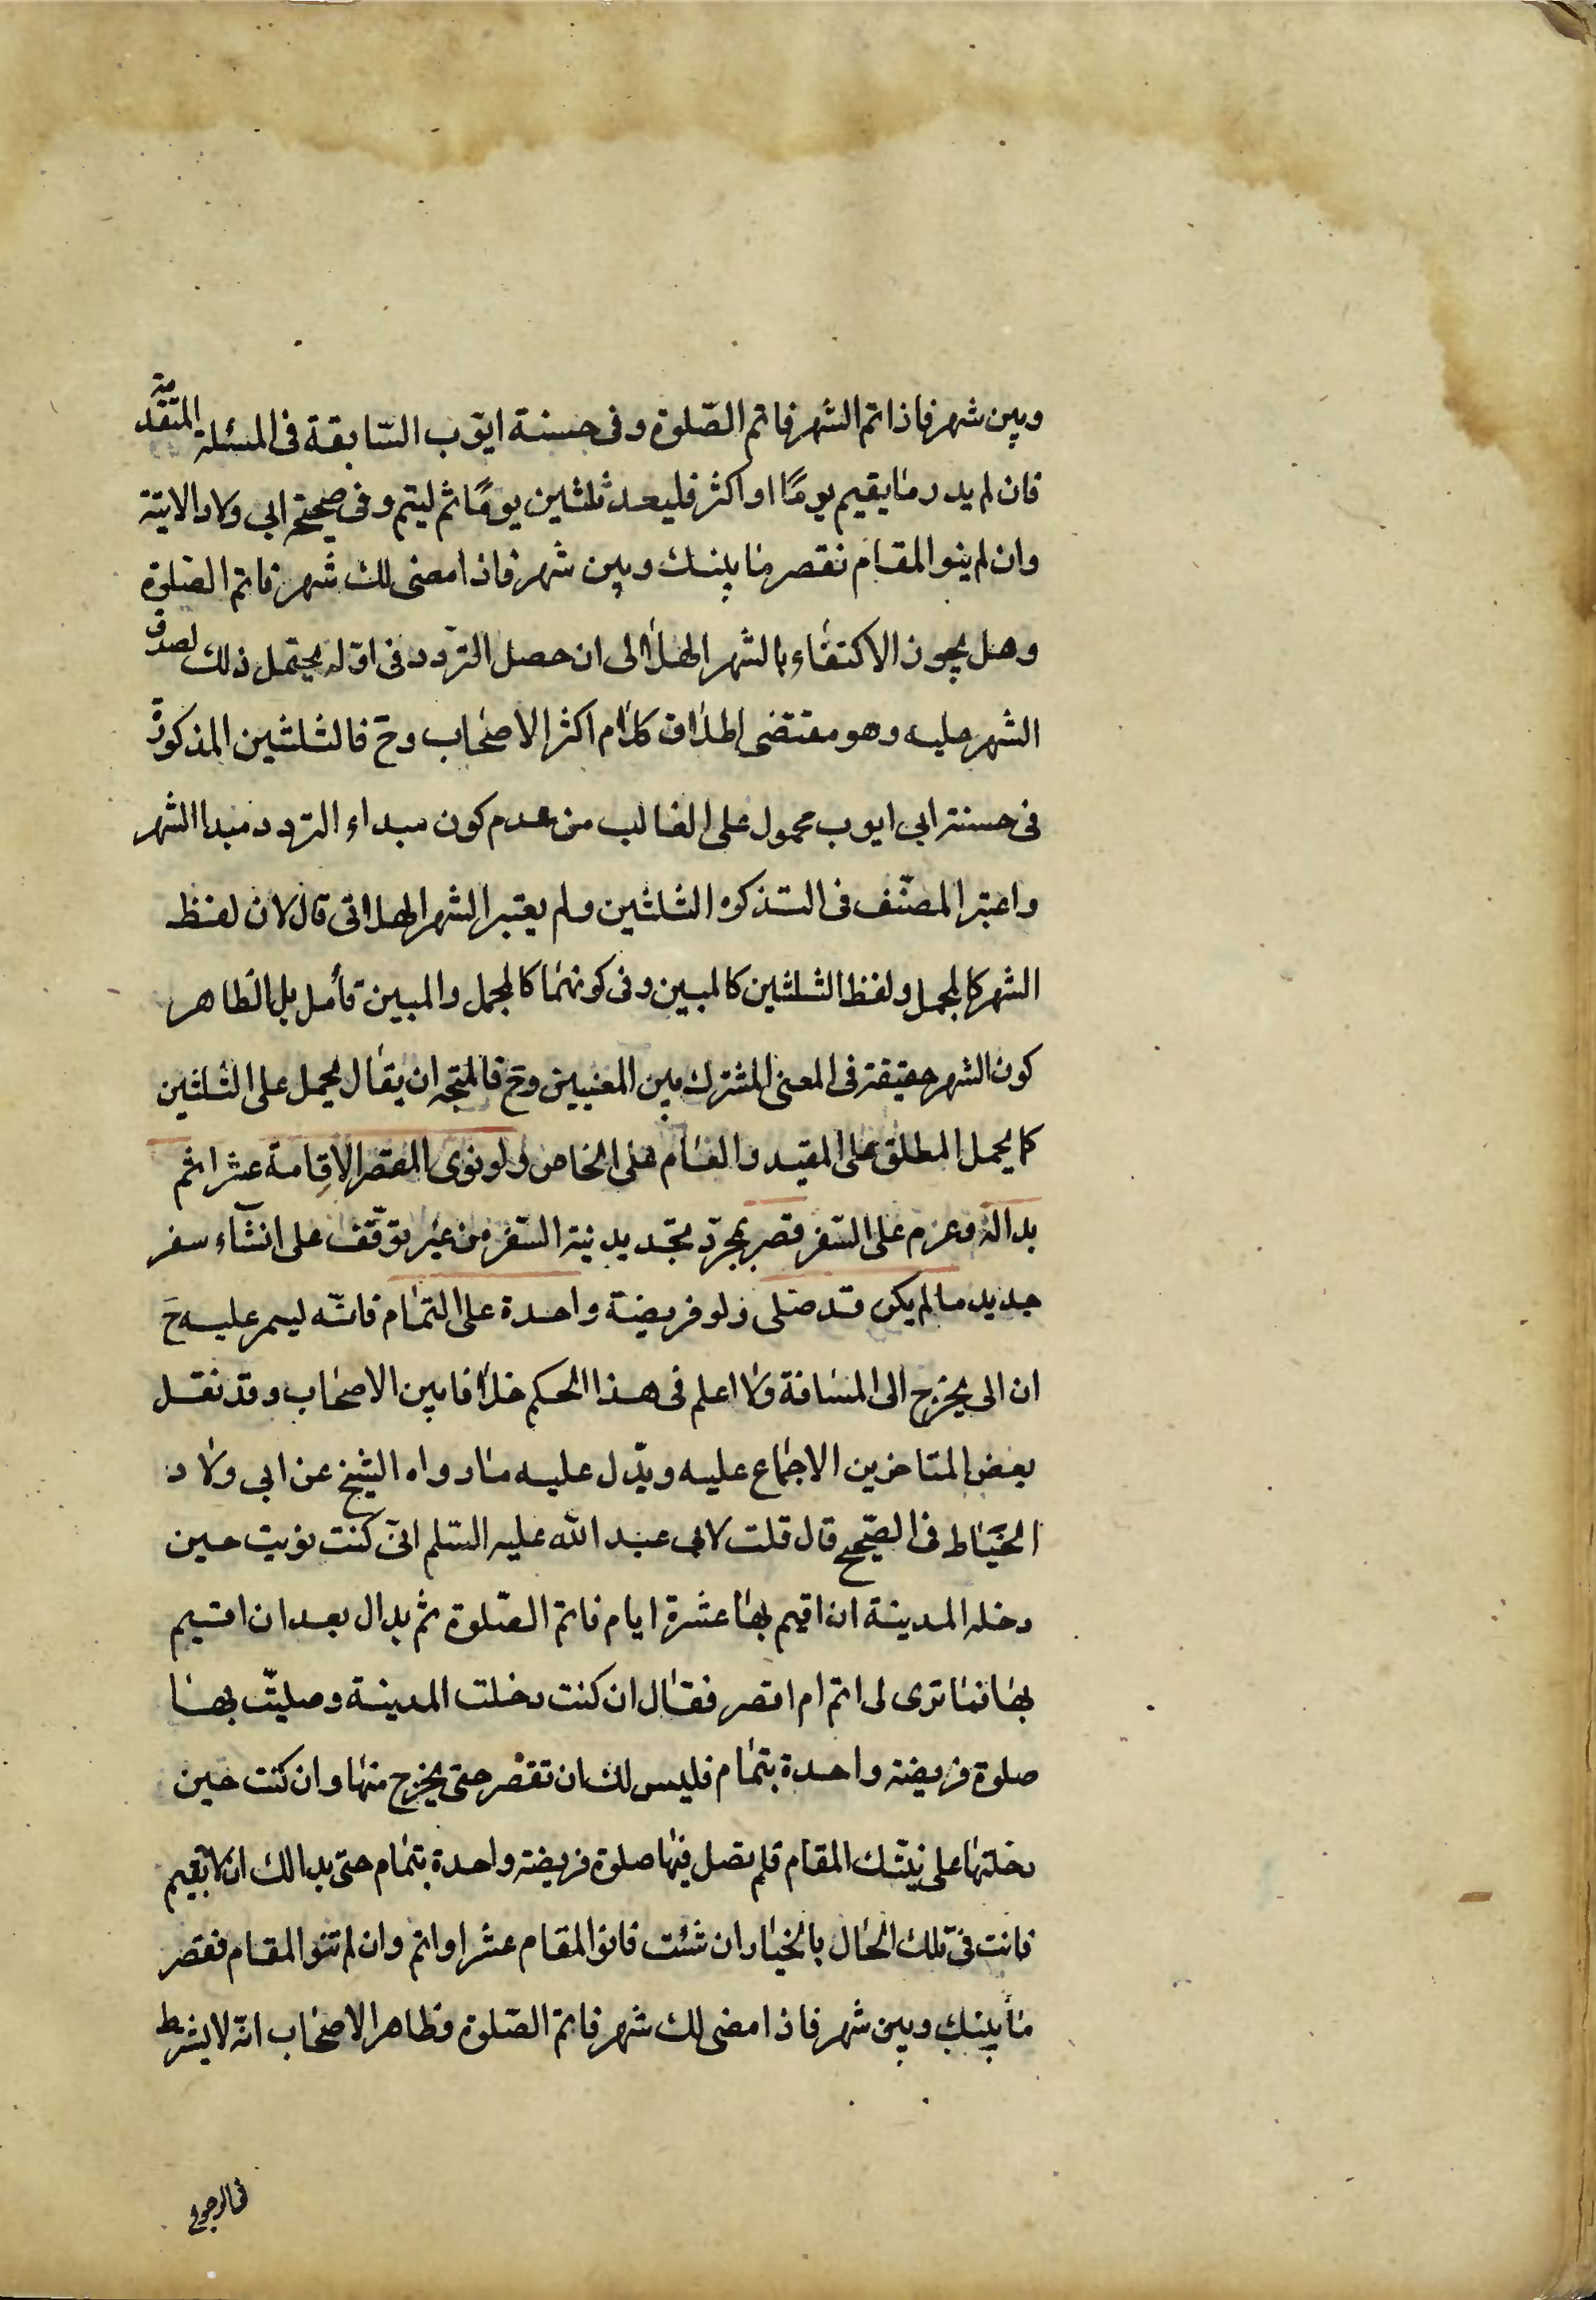 وبين شهر فاذا تم الشهر فاتم الصّلوة وفى حسنة ايّوب السّابقة فى المسئلة المتقدّمة
فان لم يدر ما يقيم يومًا او اكثر فليعد ثلثين يومًا ثم ليتم وفى صحيحة ابى ولاد الاتية
وان لم ينو المقام نقصر ما بينك وبين شهر فاذا مضى لك شهر فاتم الصلوة
وهل يجوز الاكتفاء بالشهر الهلالى ان حصل التردد فى اوله يحتمل ذلك لصدق
الشهر عليه وهو مقتضى اطلاق كلام اكثر الاصحاب وح فالثلثين المذكورة
فى حسنة ابى ايوب محمول على الغالب من عدم كون مبداء التردد مبدا الشهر
واعتبر المصنّف فى التذكره الثلثين ولم يعتبر الشهر الهلالى قال لان لفظ
الشهر كالمجمل ولفظ الثلثين كالمبين وفى كونهما كالمجمل والمبين تأمل بل الظاهر
كون الشهر حقيقة فى المعنى المشترك بين المعنيين وح فالمتجه ان يقال يحمل على الثلثين
كما يحمل المطلق على المقيد والعام على الخاص ولو نوى المقصر الاقامة عشرا ثم
بدا له وعزم على السّفر قصر بمجرّد تجديد نية السّفر من غير توقّف على انشاء سفر
جديد ما لم يكن قد صلى ولو فريضة واحدة على التمام فانّه ليس عليه ح
ان الى يخرج الى المسافة ولا اعلم فى هذا الحكم خلافا بين الاصحاب وقد نقل
بعض المتاخرين الاجماع عليه ويدّل عليه ما رواه الشيخ عن ابى ولاد
الخيّاط فى الصّحيح قال قلت لابى عبد الله عليه السّلم انّى كنت نويت حين
دخلة المدينة ان اقيم بها عشرة ايام فاتم الصّلوة ثم بدال بعد ان اقيم
بها فما ترى لى اتم ام اقصر فقال ان كنت دخلت المدينة وصليتّ بها
صلوة فريضة واحدة بتمام فليس لك ان تقصر حتى يخرج منها وان كنت حين
دخلتها على نيّتك المقام فلم تصل فيها صلوة فريضة واحدة بتمام حتى بدا لك ان لا تقيم
فانت فى تلك الحال بالخيار ان شئت فانو المقام عشرا واتم وان لم تنو المقام فقصر
ما بينك وبين شهر فاذا مضى لك شهر فاتم الصّلوة وظاهر الاصحاب انّه لا يشرط
فى الرجوع